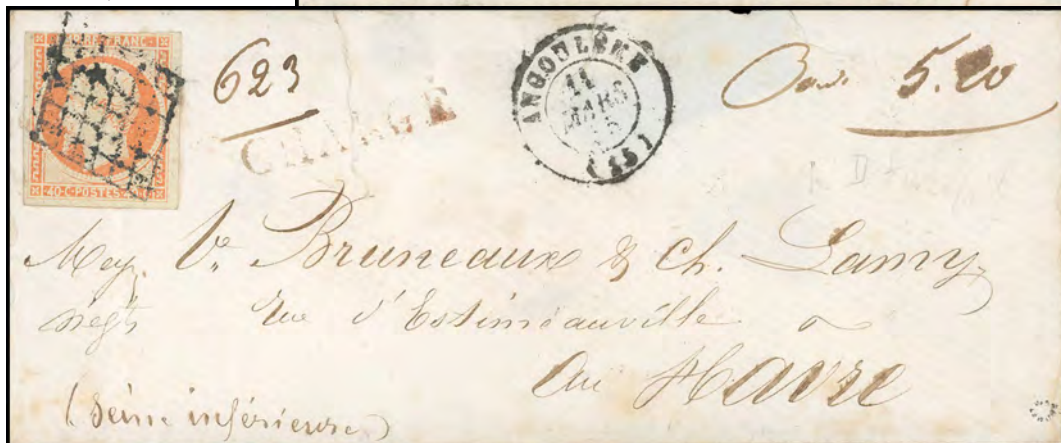 FRANC
40·C·POSTES·4
623
CHARGE
ANGOULÊME
11
MARS
(15)
5.20
V.e Bruneaux & Ch. Lamy
négts rue d'Estiméauville
au Havre
(Seine inférieure)